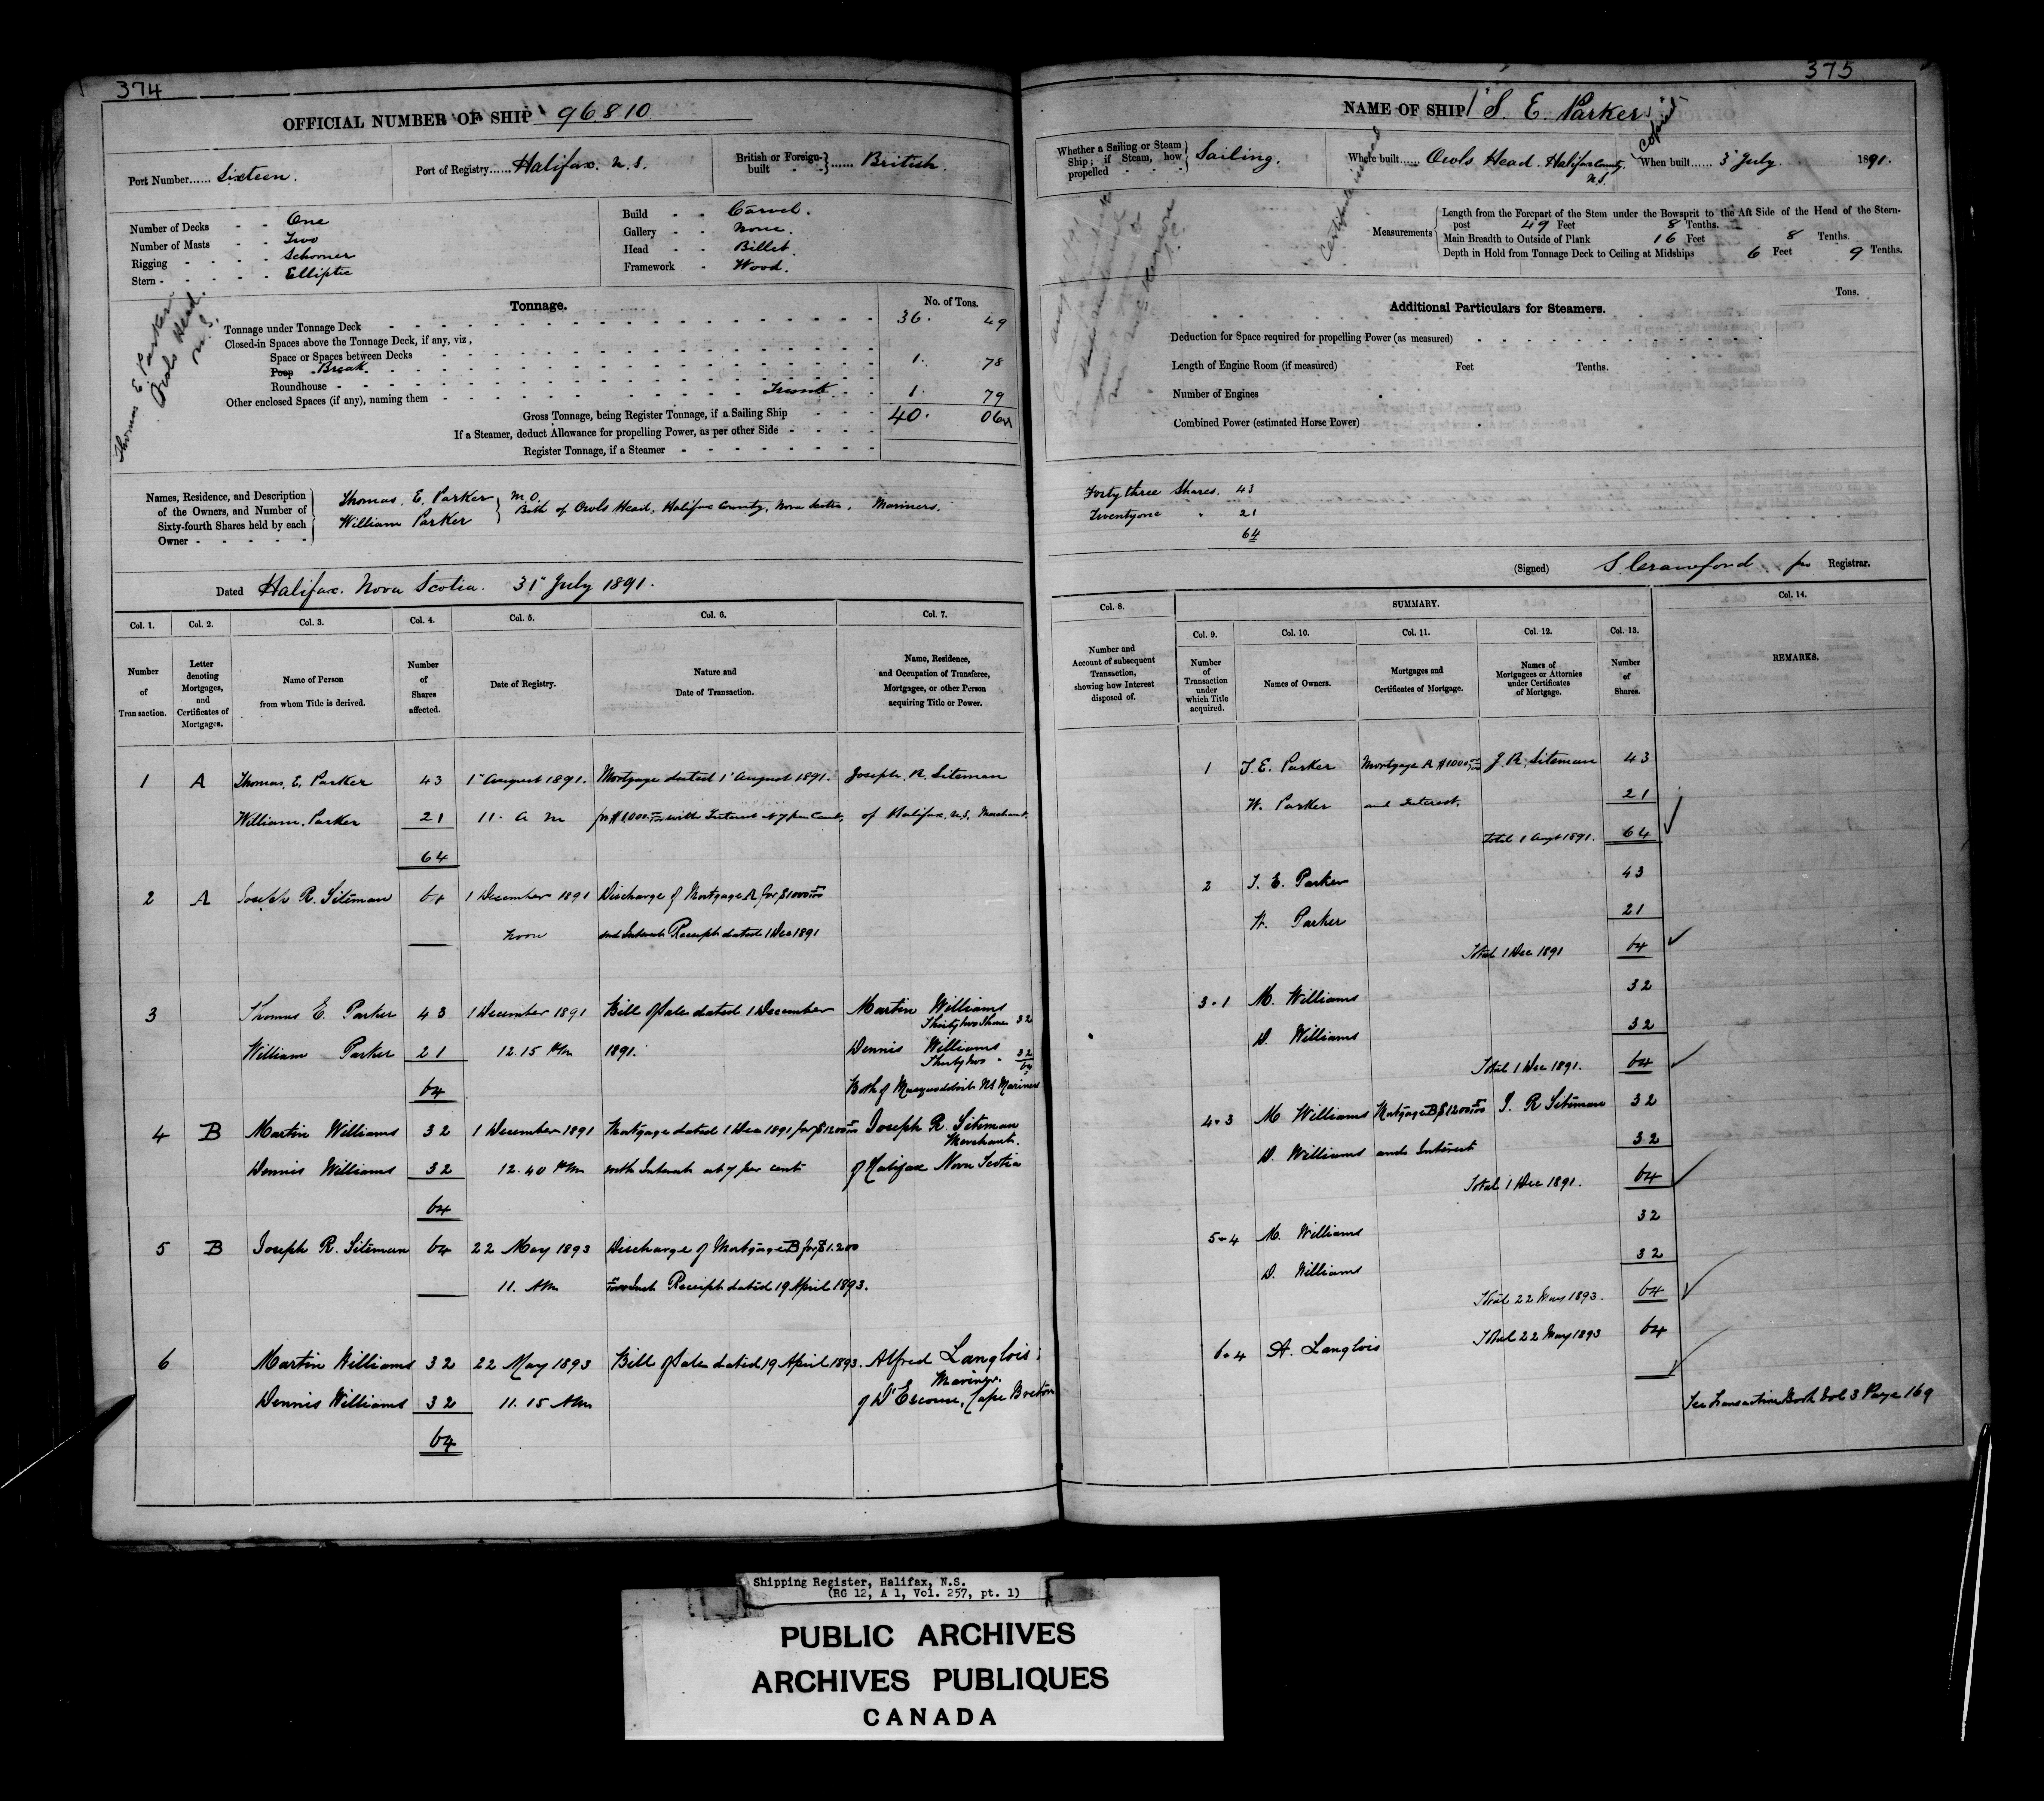 374
OFFICIAL NUMBER OF SHIP 96810
Port Number...... Sixteen.
Port of Registry...... Halifax. N.S.
British or Foreign-built } ...... British.
Number of Decks - - One
Number of Masts - - Two
Rigging - - - - Schooner
Stern - - - - - Elliptic
Build - - Carvel.
Gallery - - None.
Head - - Billet.
Framework - Wood.
Thomas E Parker
Owls Head.
N.S.
Tonnage.
No. of Tons.
Tonnage under Tonnage Deck 36. 49
Closed-in Spaces above the Tonnage Deck, if any, viz,
Space or Spaces between Decks
Poop Break 1. 78
Roundhouse
Other enclosed Spaces (if any), naming them Trunk 1. 79
Gross Tonnage, being Register Tonnage, if a Sailing Ship 40. 06
If a Steamer, deduct Allowance for propelling Power, as per other Side
Register Tonnage, if a Steamer
Names, Residence, and Description of the Owners, and Number of Sixty-fourth Shares held by each Owner
Thomas. E. Parker M.O.
William Parker } Both of Owls Head, Halifax County, Nova Scotia, Mariners.
Dated Halifax. Nova Scotia. 31st July 1891.
Col. 1. Col. 2. Col. 3. Col. 4. Col. 5. Col. 6. Col. 7.
Number of Transaction.
Letter denoting Mortgages, and Certificates of Mortgages.
Name of Person from whom Title is derived.
Number of Shares affected.
Date of Registry.
Nature and Date of Transaction.
Name, Residence, and Occupation of Transferee, Mortgagee, or other Person acquiring Title or Power.
1 A Thomas. E. Parker 43 1st August 1891. Mortgage dated 1st August 1891. Joseph. R. Siteman
William. Parker 21 11. a m for $1,000 with Interest at 7 per Cent, of Halifax, N.S. Merchant.
64
2 A Joseph R. Siteman 64 1 December 1891 Discharge of Mortgage A for $1000
Noon and Interest Receipt dated 1 Dec 1891
3 Thomas E. Parker 43 1 December 1891 Bill of Sale dated 1 December Martin Williams
Thirty two Shares 32
William Parker 21 12.15 PM 1891. Dennis Williams
Thirty two " 32
64 64
Both of Musquodoboit NS Mariners
4 B Martin Williams 32 1 December 1891 Mortgage dated 1 Dec 1891 for $1200 Joseph R. Siteman
Merchant.
Dennis Williams 32 12.40 PM with Interest at 7 per cent of Halifax Nova Scotia
64
5 B Joseph R. Siteman 64 22 May 1893 Discharge of Mortgage B for $1.200
11. AM Receipt dated 19 April 1893.
6 Martin Williams 32 22 May 1893 Bill of Sale dated 19 April 1893. Alfred Langlois,
Mariner.
Dennis Williams 32 11.15 AM of D'Escousse, Cape Breton
64
375
NAME OF SHIP "S. E. Parker"
Copied
Whether a Sailing or Steam Ship; if Steam, how propelled } Sailing.
Where built...... Owls Head. Halifax County. N.S.
When built...... 3d July. 1891.
Certificate issued
Measurements
Length from the Forepart of the Stem under the Bowsprit to the Aft Side of the Head of the Stern-post 49 Feet 8 Tenths.
Main Breadth to Outside of Plank 16 Feet 8 Tenths.
Depth in Hold from Tonnage Deck to Ceiling at Midships 6 Feet 9 Tenths.
Additional Particulars for Steamers.
Tons.
Deduction for Space required for propelling Power (as measured)
Length of Engine Room (if measured) Feet Tenths.
Number of Engines
Combined Power (estimated Horse Power)
Forty three Shares. 43
Twenty one " 21
64
(Signed) S. Crawford pro Registrar.
Col. 8. SUMMARY. Col. 14.
Col. 9. Col. 10. Col. 11. Col. 12. Col. 13.
Number and Account of subsequent Transaction, showing how Interest disposed of.
Number of Transaction under which Title acquired.
Names of Owners.
Mortgages and Certificates of Mortgage.
Names of Mortgagees or Attornies under Certificates of Mortgage.
Number of Shares.
REMARKS.
1 T. E. Parker Mortgage A $1000 J. R. Siteman 43
W. Parker and Interest. 21
Total 1 Augt 1891. 64
2 T. E. Parker 43
W. Parker 21
Total 1 Dec 1891 64
3.1 M. Williams 32
D. Williams 32
Total 1 Dec 1891. 64
4.3 M. Williams Mortgage B $1200 J. R Siteman 32
D. Williams and Interest 32
Total 1 Dec 1891. 64
5.4 M. Williams 32
D. Williams 32
Total 22 May 1893. 64
6.4 A. Langlois Total 22 May 1893 64
See Transaction Book Vol 3 Page 169
Shipping Register, Halifax, N.S.
(RG 12, A 1, Vol. 257, pt. 1)
PUBLIC ARCHIVES
ARCHIVES PUBLIQUES
CANADA